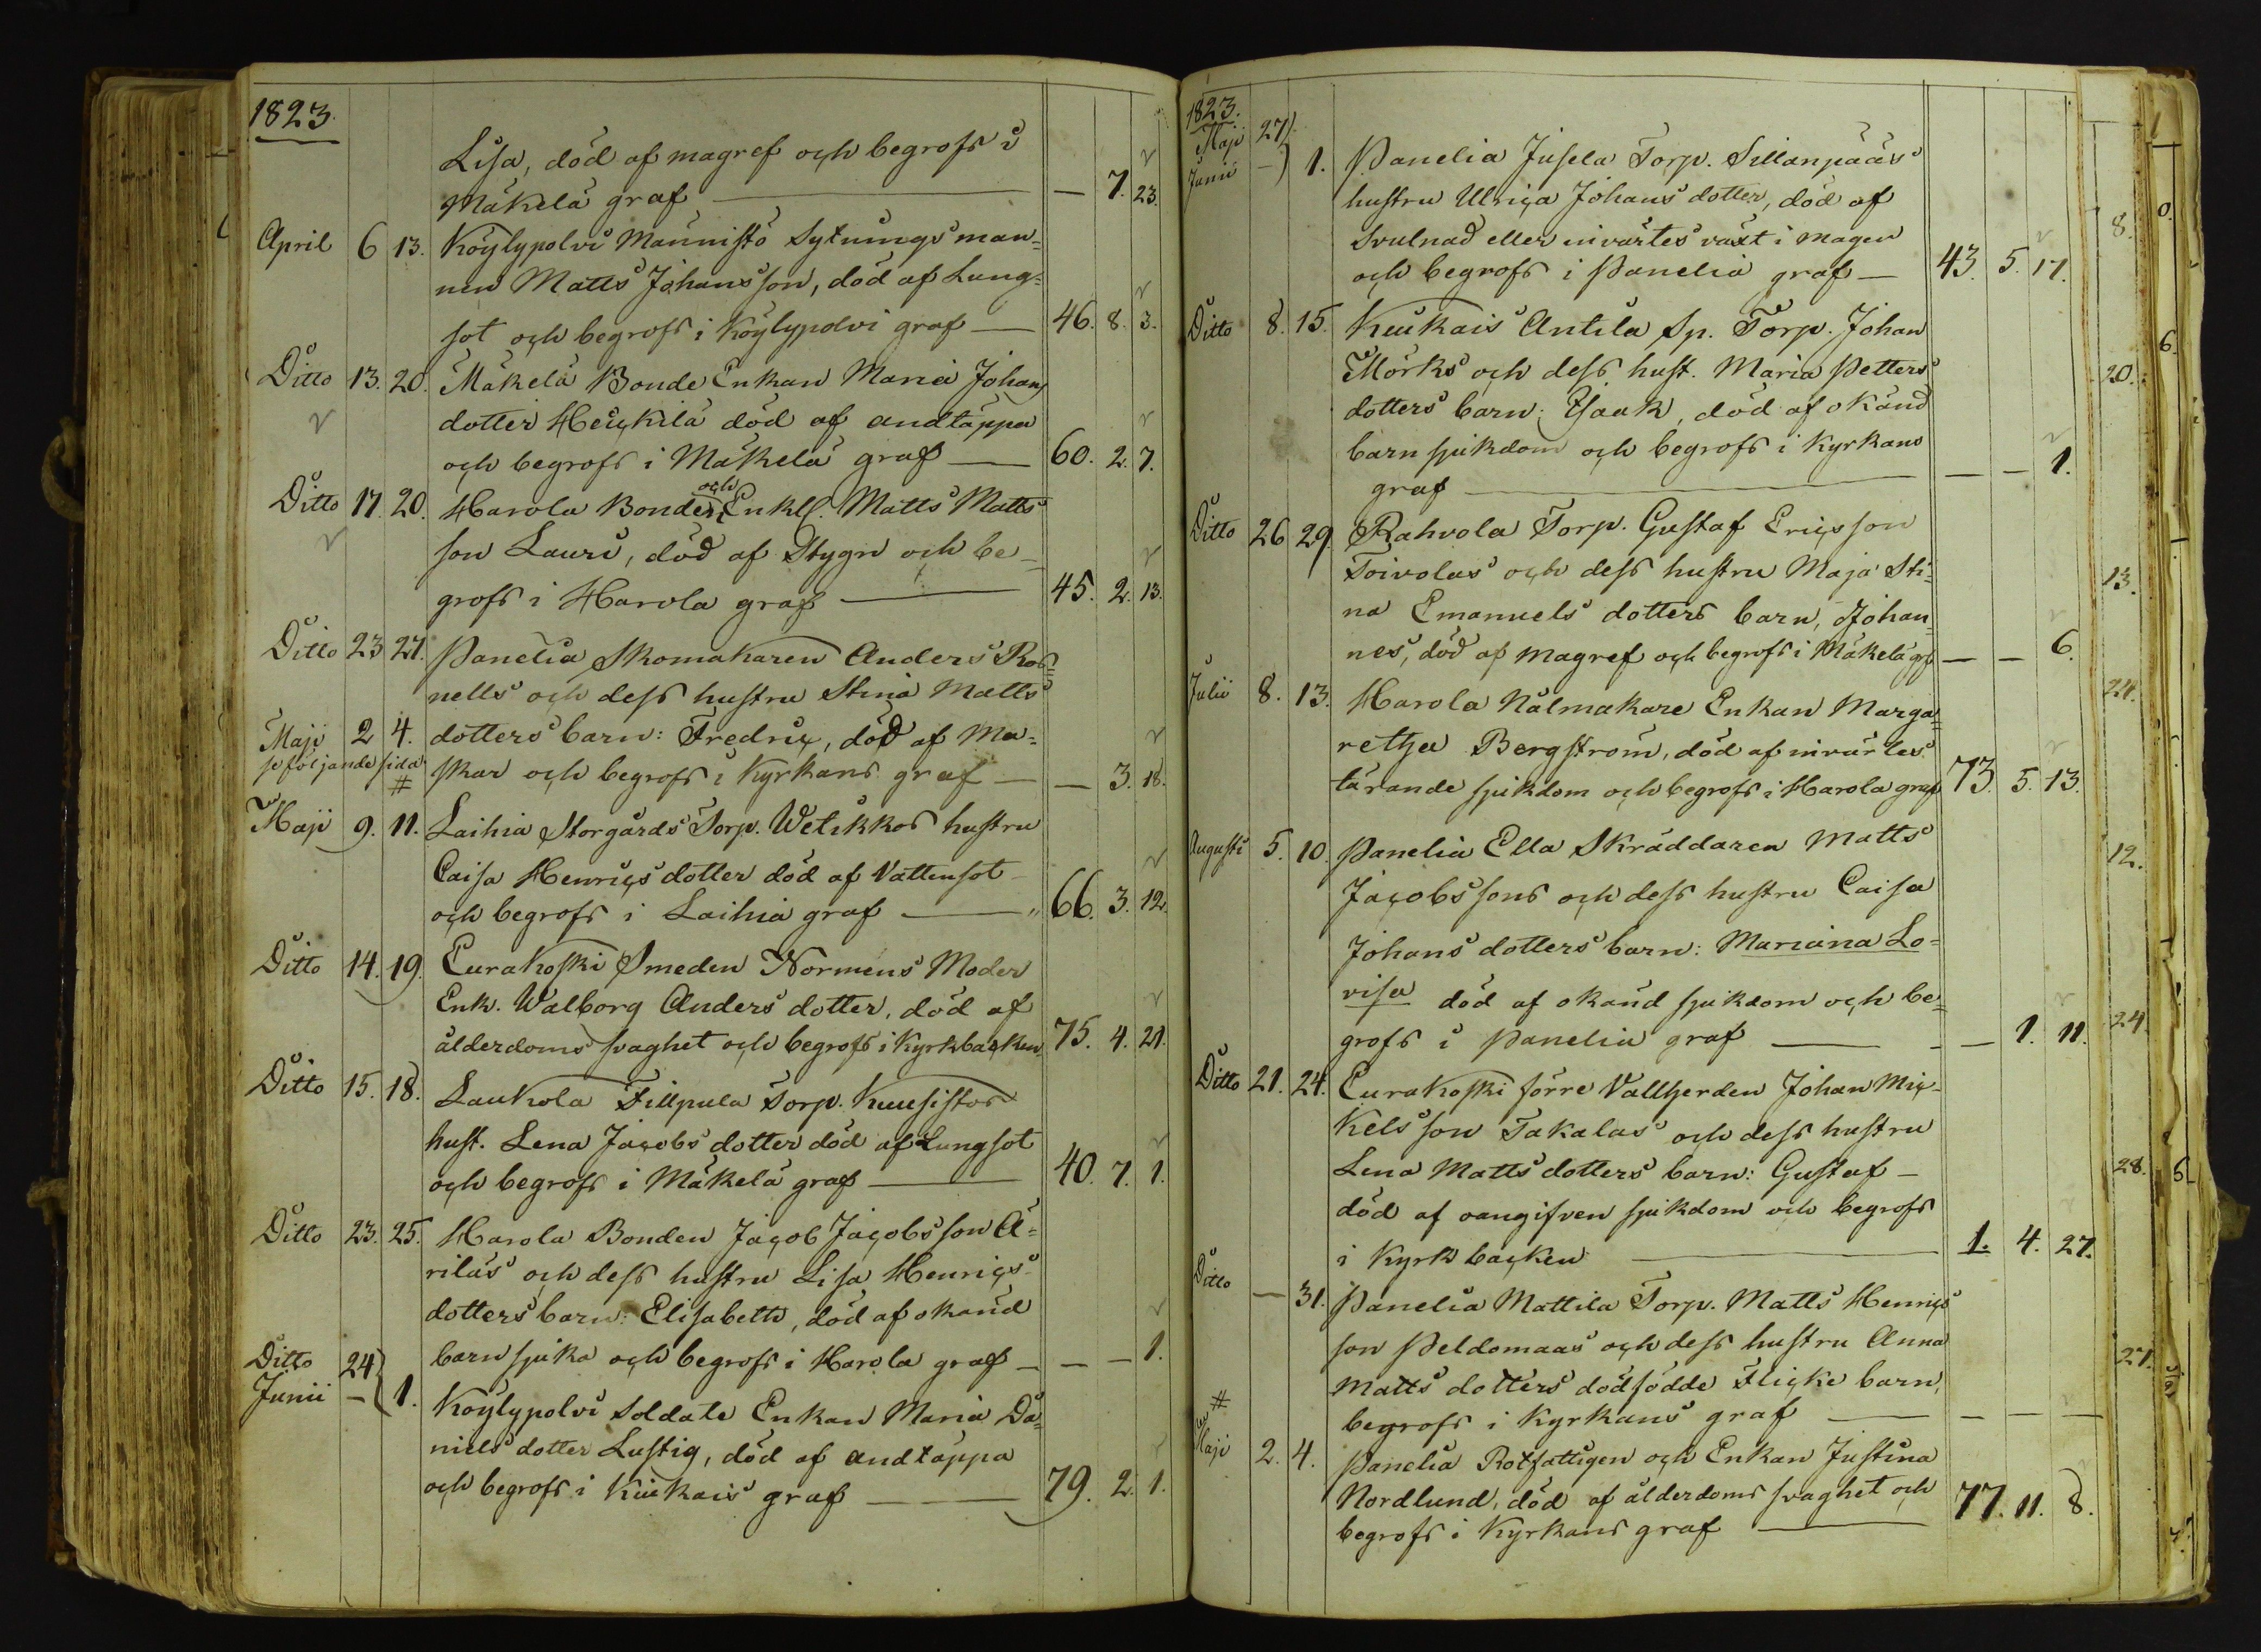 1823.
Lisa, död af magref och begrofs i
Mäkelä graf — — 7. 23.
April 6 13. Köylypolvi Männistö Sytningsman-
nen Matts Johansson, död af Lung-
sot och begrofs i Köylypolvi graf — 46. 8. 3.
Ditto 13. 20. Mäkelä Bonde Enkan Maria Johans
dotter Heickilä död af andtäppa
och begrofs i Mäkelä graf — 60. 2. 7.
Ditto 17. 20. Harola Bonden och Enkl. Matts Matts
son Lauri, död af Stygn och be-
grofs i Harola graf — 45. 2. 13.
Ditto 23 27. Panelia Skomakaren Anders Ros-
nells och dess hustru Stina Matts
Maji 2 4. dotters barn: Fredric, död af Ma-
se följande sida # skar och begrofs i Kyrkans graf — — 3. 18.
Maji 9. 11. Laihia Storgårds Torp. Wetikkos hustru
Caisa Henricsdotter död af Vattusot
och begrofs i Laihia graf — 66. 3. 12.
Ditto 14. 19. Eurakoski Smeden Normens Moder
Enk. Walborg Andersdotter, död af
ålderdoms svaghet och begrofs i Kyrkbacken 75. 4. 21.
Ditto 15. 18. Laukola Fillpula Torp. Kuusistos
hust. Lena Jacobsdotter död af Lungsot
och begrofs i Mäkelä graf — 40. 7. 1.
Ditto 23. 25. Harola Bonden Jacob Jacobsson A-
rilas och dess hustru Lisa Henrics
dotters barn: Elisabeth, död af okänd
Ditto 24 barnsjuka och begrofs i Harola graf — — — 1.
Junii — 1. Köylypolvi Soldate Enkan Maria Da-
nielsdotter Lustig, död af andtäppa
och begrofs i Kiukais graf — 79. 2. 1.
1823.
Maji 27
Junii — 1. Panelia Jusela Torp. Sillanpääs
hustru Ulrica Johansdotter, död af
Svulnad eller invärtes växt i magen
och begrofs i Panelia graf — 43. 5. 17.
Ditto 8. 15. Kiukais Antila Sp. Torp. Johan
Mörks och dess hust. Maria Petters
dotters barn: Isaak, död af okänd
barnsjukdom och begrofs i Kyrkans
graf — — — 1.
Ditto 26 29. Rahvola Torp. Gustaf Ericsson
Toivolas och dess hustru Maja Sti-
na Emanuels dotters barn, Johan-
nes, död af magref och begrofs i Mäkelä grf — — 6.
Julii 8. 13. Harola Nålmakare Enkan Marga-
retha Bergström, död af invärtes
tärande sjukdom och begrofs i Harola graf 73. 5. 13.
Augusti 5. 10. Panelia Ella Skräddaren Matts
Jacobssons och dess hustru Caisa
Johansdotters barn: Mariana Lo-
visa död af okänd sjukdom och be-
grofs i Panelia graf — — 1. 11.
Ditto 21. 24. Eurakoski förre Vallherden Johan Mic-
kelsson Takalas och dess hustru
Lena Mattsdotters barn: Gustaf —
död af oangifven sjukdom och begrofs
i Kyrkbacken — 1. 4. 27.
Ditto — 31. Panelia Mattila Torp. Matts Henrics
son Peldomaas och dess hustru Anna
Mattsdotters dödfödde Flicke barn,
begrofs i Kyrkans graf — — — —
#
Maji 2. 4. Panelia Rotfattigen och Enkan Justina
Nordlund, död af ålderdoms svaghet och
begrofs i Kyrkans graf — 77. 11. 8.
8.
20.
13.
24.
12.
24.
28.
27.
0.
6.